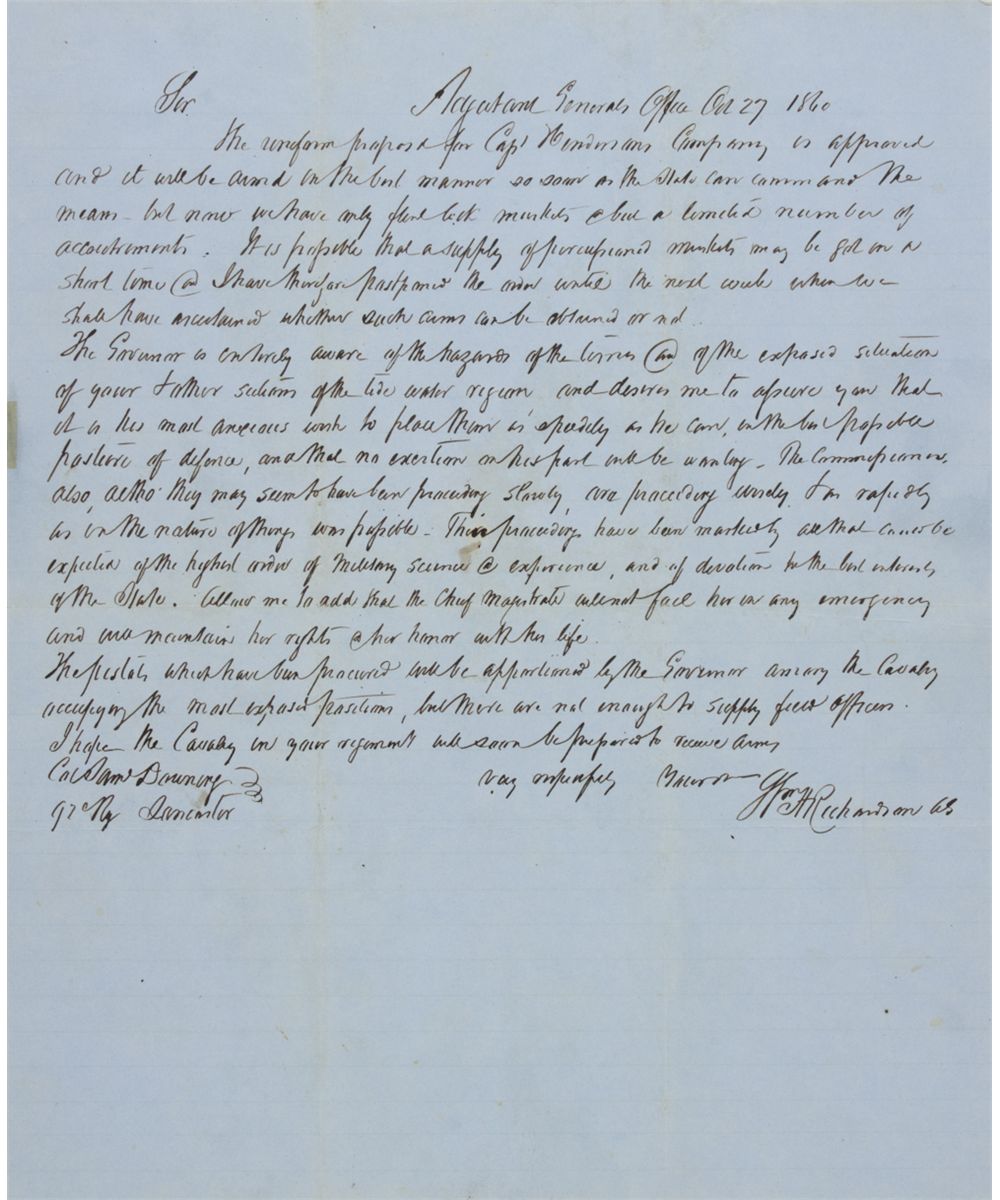 Sir. Adjutant Generals Office Oct 27 1860
The uniform proposed for Capt Hendersons Company is approved
and it will be armed in the best manner so soon as the State can command the
means - but now we have only flint lock muskets & but a limited number of
accoutrements. It is possible that a supply of percussioned muskets may be got in a
short time & I have therefore postponed the order until the next week when we
shall have ascertained whether such arms can be obtained or not.
The Governor is entirely aware of the hazards of the times and of the exposed situation
of your & other sections of the tide water region and desires me to assure you that
it is his most anxious wish to place them as speedily as he can, in the best possible
posture of defence, and that no exertion on his part will be wanting - The Commissioners,
also, altho' they may seem to have been proceeding slowly, are proceeding wisely & as rapidly
as in the nature of things was possible - Their proceedings have been marked by all that could be
expected of the highest order of Military science & experience, and of devotion to the best interests
of the State. Allow me to add that the Chief Magistrate will not fail her in any emergency
and will maintain her rights & her honor with his life.
The pistols which have been procured will be apportioned by the Governor among the Cavalry
occupying the most exposed positions, but there are not enough to supply field officers.
I hope the Cavalry in your regiment will soon be prepared to receive arms
Col Saml Downing very respectfully Yours
92d Rg Lancaster Wm H Richardson AG